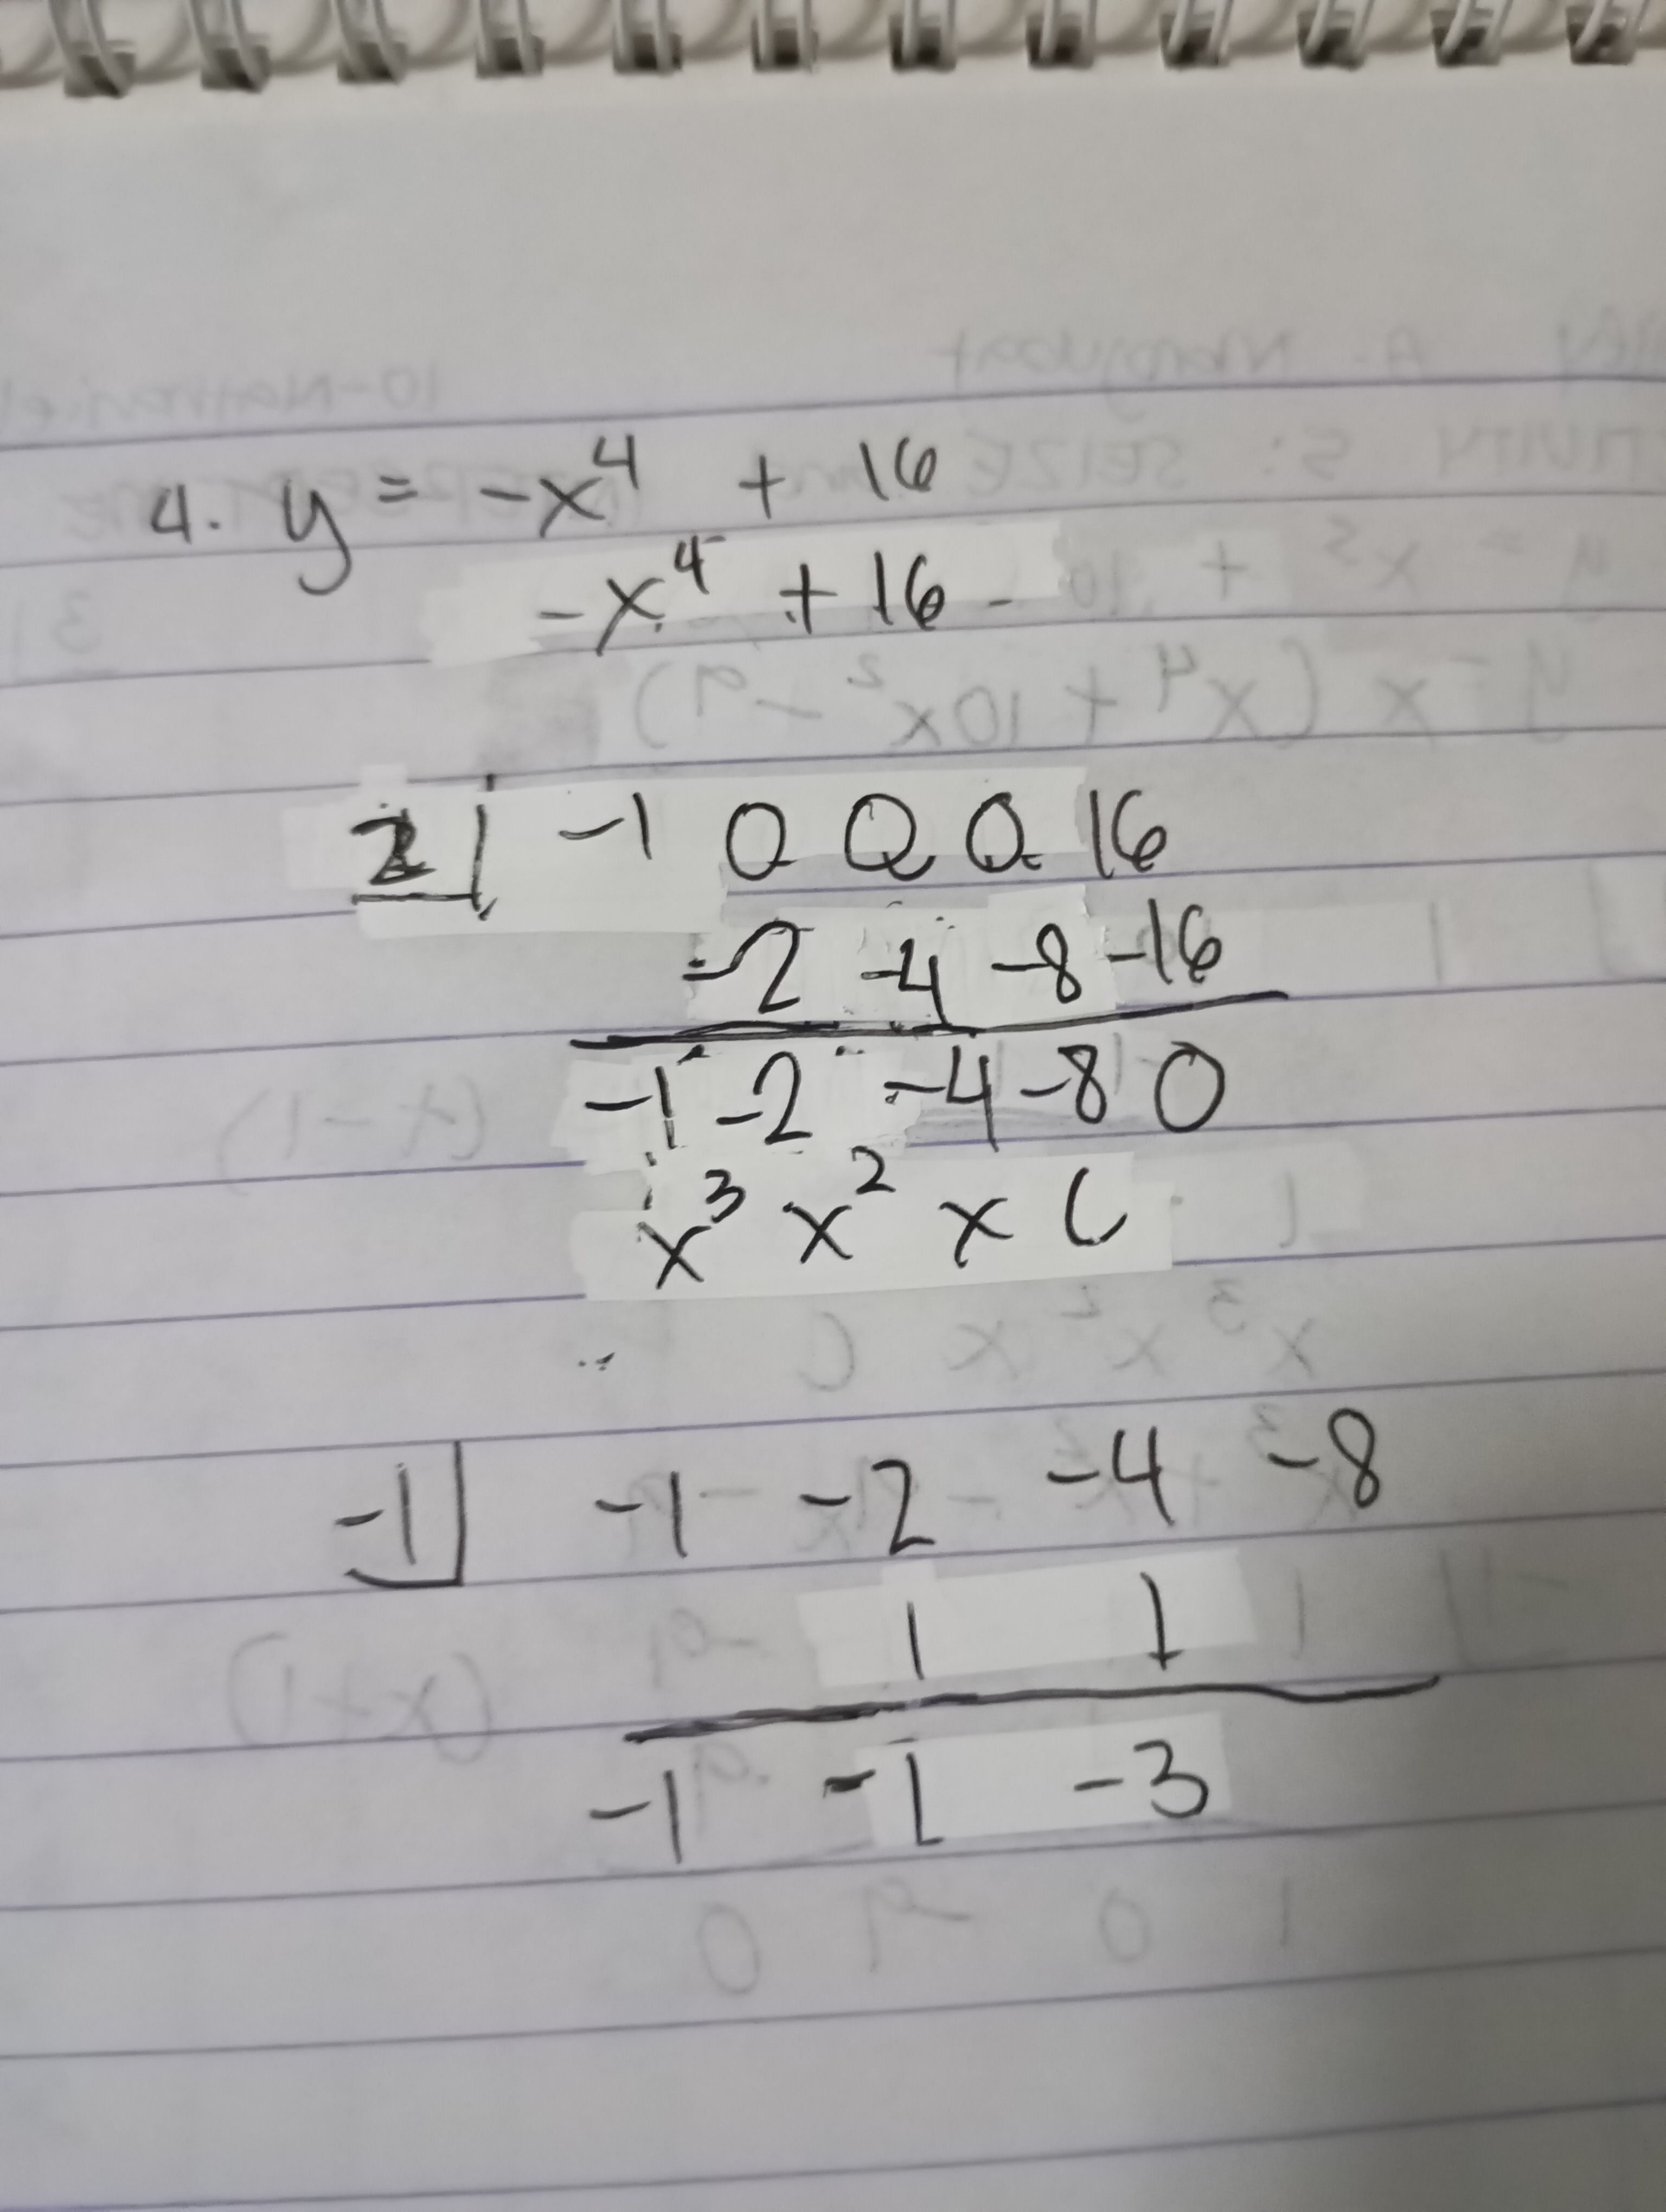 4. y = -x⁴ + 16
-x⁴ + 16
2| -1 0 0 0 16
-2 -4 -8 -16
-1 -2 -4 -8 0
x³ x² x C
-1| -1 -2 -4 -8
1 1
-1 -1 -3